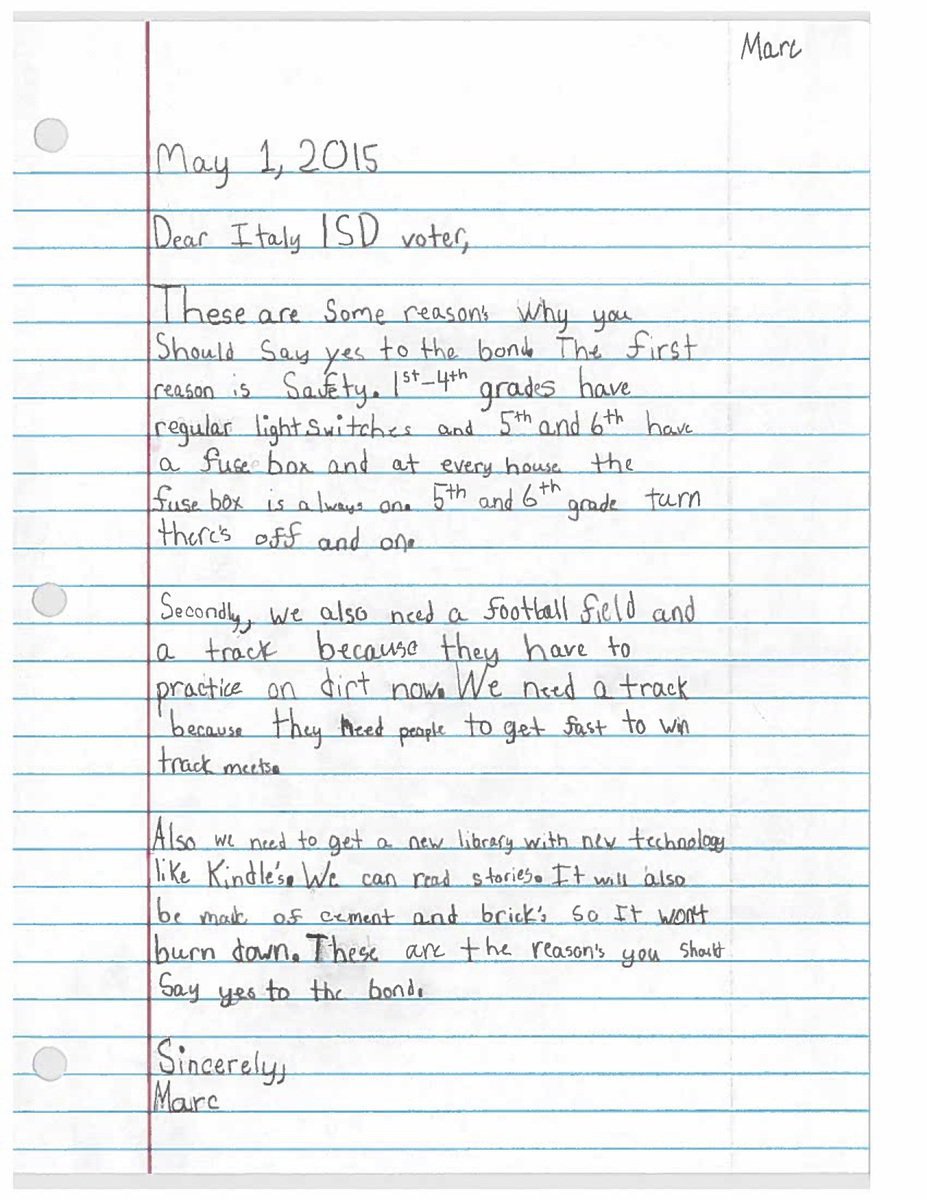 Marc
May 1, 2015
Dear Italy ISD voter,
These are Some reason's Why you
Should Say yes to the bond. The first
reason is Safety. 1st-4th grades have
regular light Switches and 5th and 6th have
a fuse box and at every house the
fuse box is always on. 5th and 6th grade turn
there's off and on.
Secondly, we also need a football field and
a track because they have to
practice on dirt now. We need a track
because they need people to get fast to win
track meets.
Also we need to get a new library with new technology
like Kindle's. We can read stories. It will also
be made of cement and brick's so It won't
burn down. These are the reason's you should
Say yes to the bond.
Sincerely,
Marc